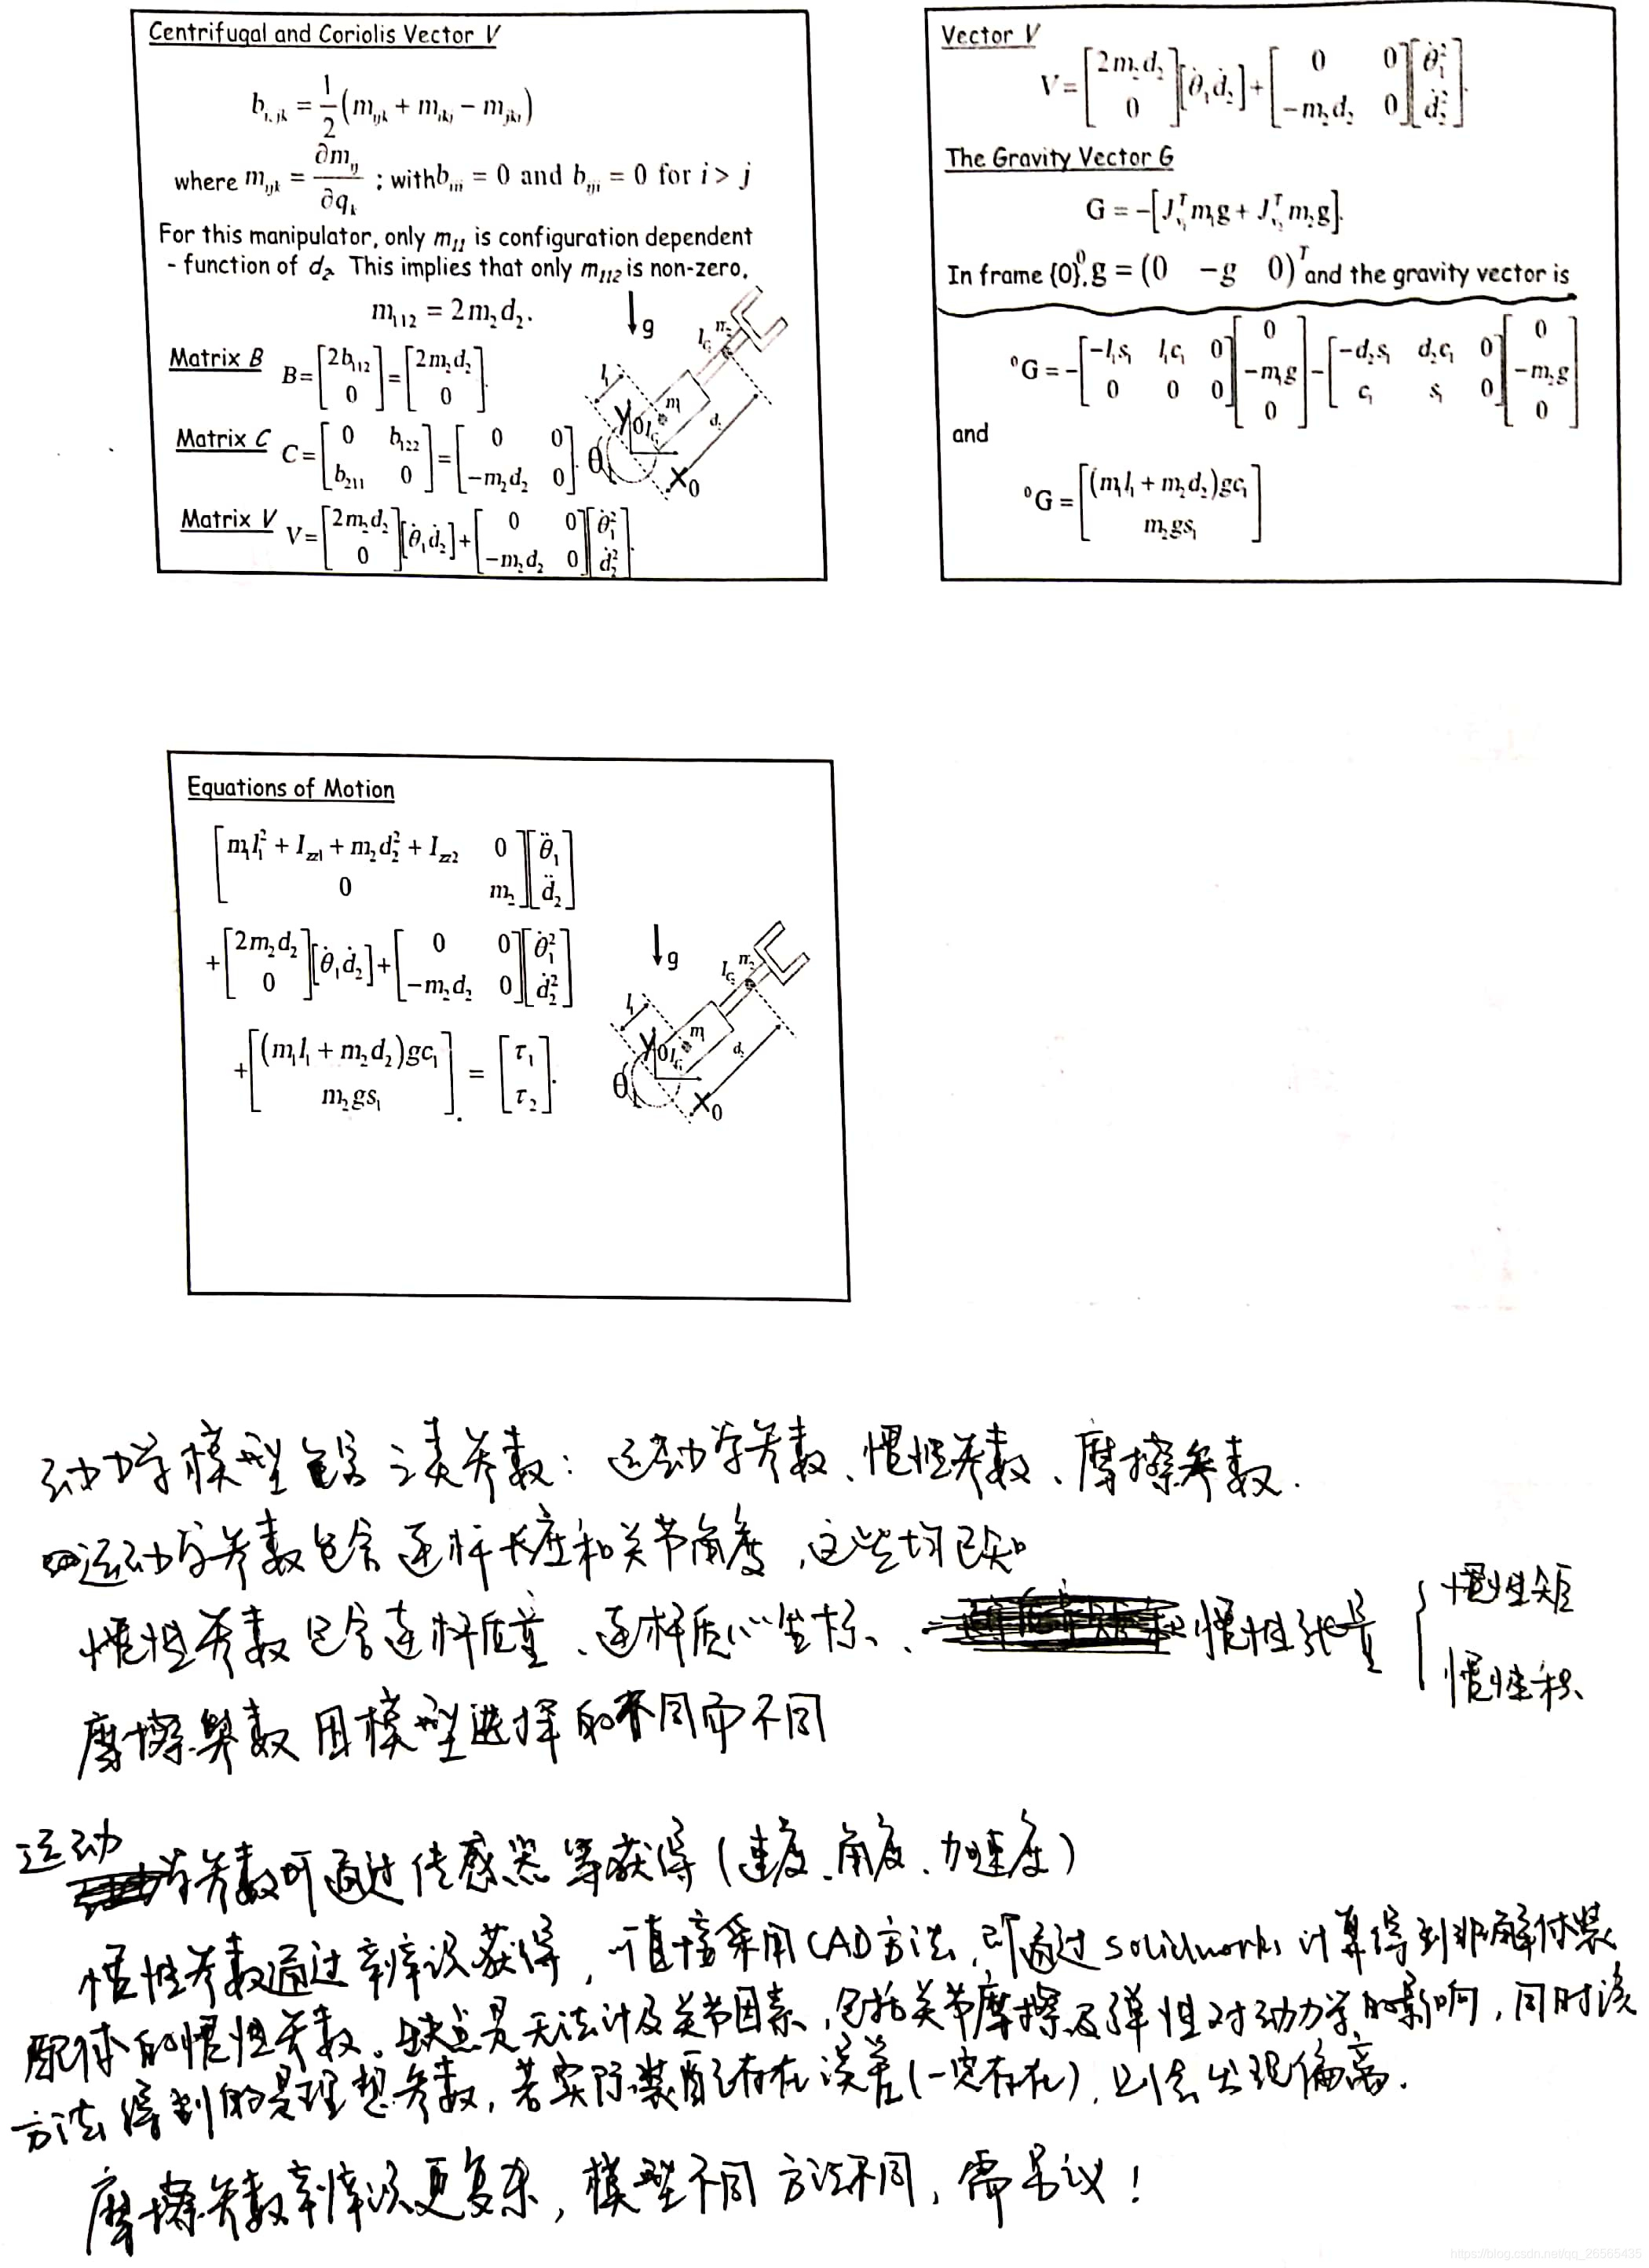 Centrifugal and Coriolis Vector V
b_{i,jk} = 1/2 (m_{ijk} + m_{ikj} − m_{jki})
where m_{ijk} = ∂m_{ij}/∂q_k ; with b_{iii} = 0 and b_{iji} = 0 for i > j
For this manipulator, only m_{11} is configuration dependent
- function of d_2. This implies that only m_{112} is non-zero,
m_{112} = 2m_2d_2.
Matrix B B = [2b_{112}; 0] = [2m_2d_2; 0].
Matrix C C = [0 b_{122}; b_{211} 0] = [0 0; −m_2d_2 0].
Matrix V V = [2m_2d_2; 0][θ̇_1ḋ_2] + [0 0; −m_2d_2 0][θ̇_1^2; ḋ_2^2].
g
l_1
m_1
m_2
d_2
θ_1
Y_0
X_0
I_{C1}
I_{C2}
Vector V
V = [2m_2d_2; 0][θ̇_1ḋ_2] + [0 0; −m_2d_2 0][θ̇_1^2; ḋ_2^2].
The Gravity Vector G
G = −[J_{v1}^T m_1g + J_{v2}^T m_2g].
In frame {0}, ^0g = (0 −g 0)^T and the gravity vector is
^0G = −[−l_1s_1 l_1c_1 0; 0 0 0][0; −m_1g; 0] − [−d_2s_1 d_2c_1 0; c_1 s_1 0][0; −m_2g; 0]
and
^0G = [(m_1l_1 + m_2d_2)gc_1; m_2gs_1]
Equations of Motion
[m_1l_1^2 + I_{zz1} + m_2d_2^2 + I_{zz2} 0; 0 m_2][θ̈_1; d̈_2]
+ [2m_2d_2; 0][θ̇_1ḋ_2] + [0 0; −m_2d_2 0][θ̇_1^2; ḋ_2^2]
+ [(m_1l_1 + m_2d_2)gc_1; m_2gs_1] = [τ_1; τ_2].
g
l_1
m_1
m_2
d_2
θ_1
Y_0
X_0
I_{C1}
I_{C2}
动力学模型包含三类参数：运动学参数、惯性参数、摩擦参数.
运动学参数包含连杆长度和关节角度，这些均已知
惯性参数包含连杆质量、连杆质心坐标、惯性张量 { 惯性矩
惯性积
摩擦参数因模型选择的不同而不同
运动学参数可通过传感器等获得（速度、角度、加速度）
惯性参数通过辨识获得，一直接采用CAD方法，即通过solidworks计算得到非解体装
配体的惯性参数。缺点是无法计及关节因素，包括关节摩擦及弹性对动力学的影响，同时该
方法得到的是理想参数，若实际装配存在误差（一定存在），则会出现偏离.
摩擦参数辨识更复杂，模型不同方法不同，需另议！
https://blog.csdn.net/qq_26565435